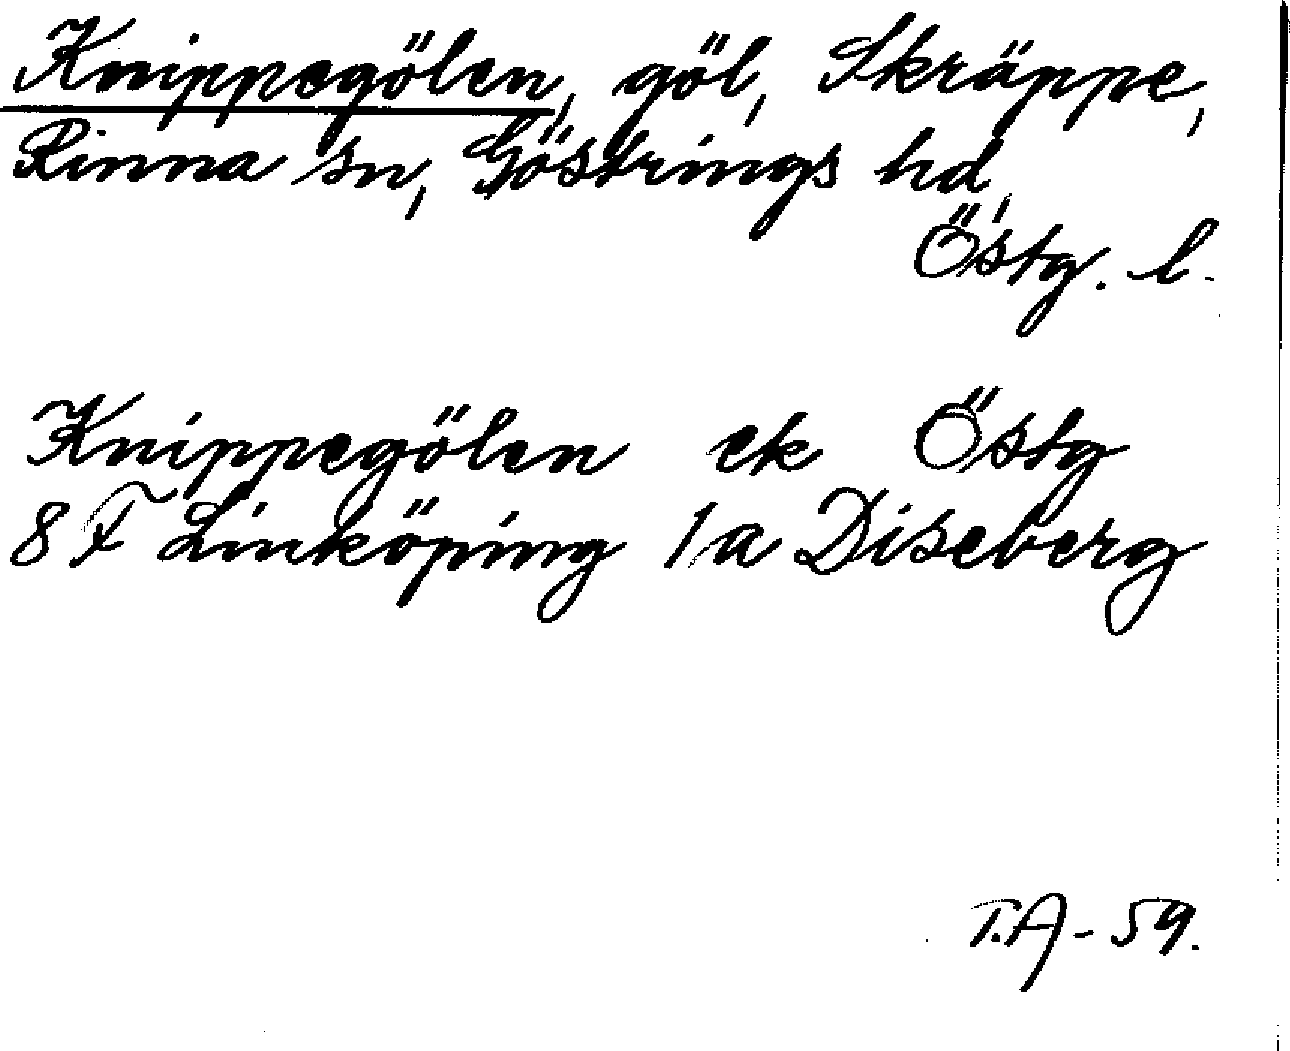 Knippegölen, göl, Skräppe,
Rinna sn, Göstrings hd,
Östg. l.
Knippegölen ek Östg
8 F Linköping 1a Diseberg
T.A - 59.